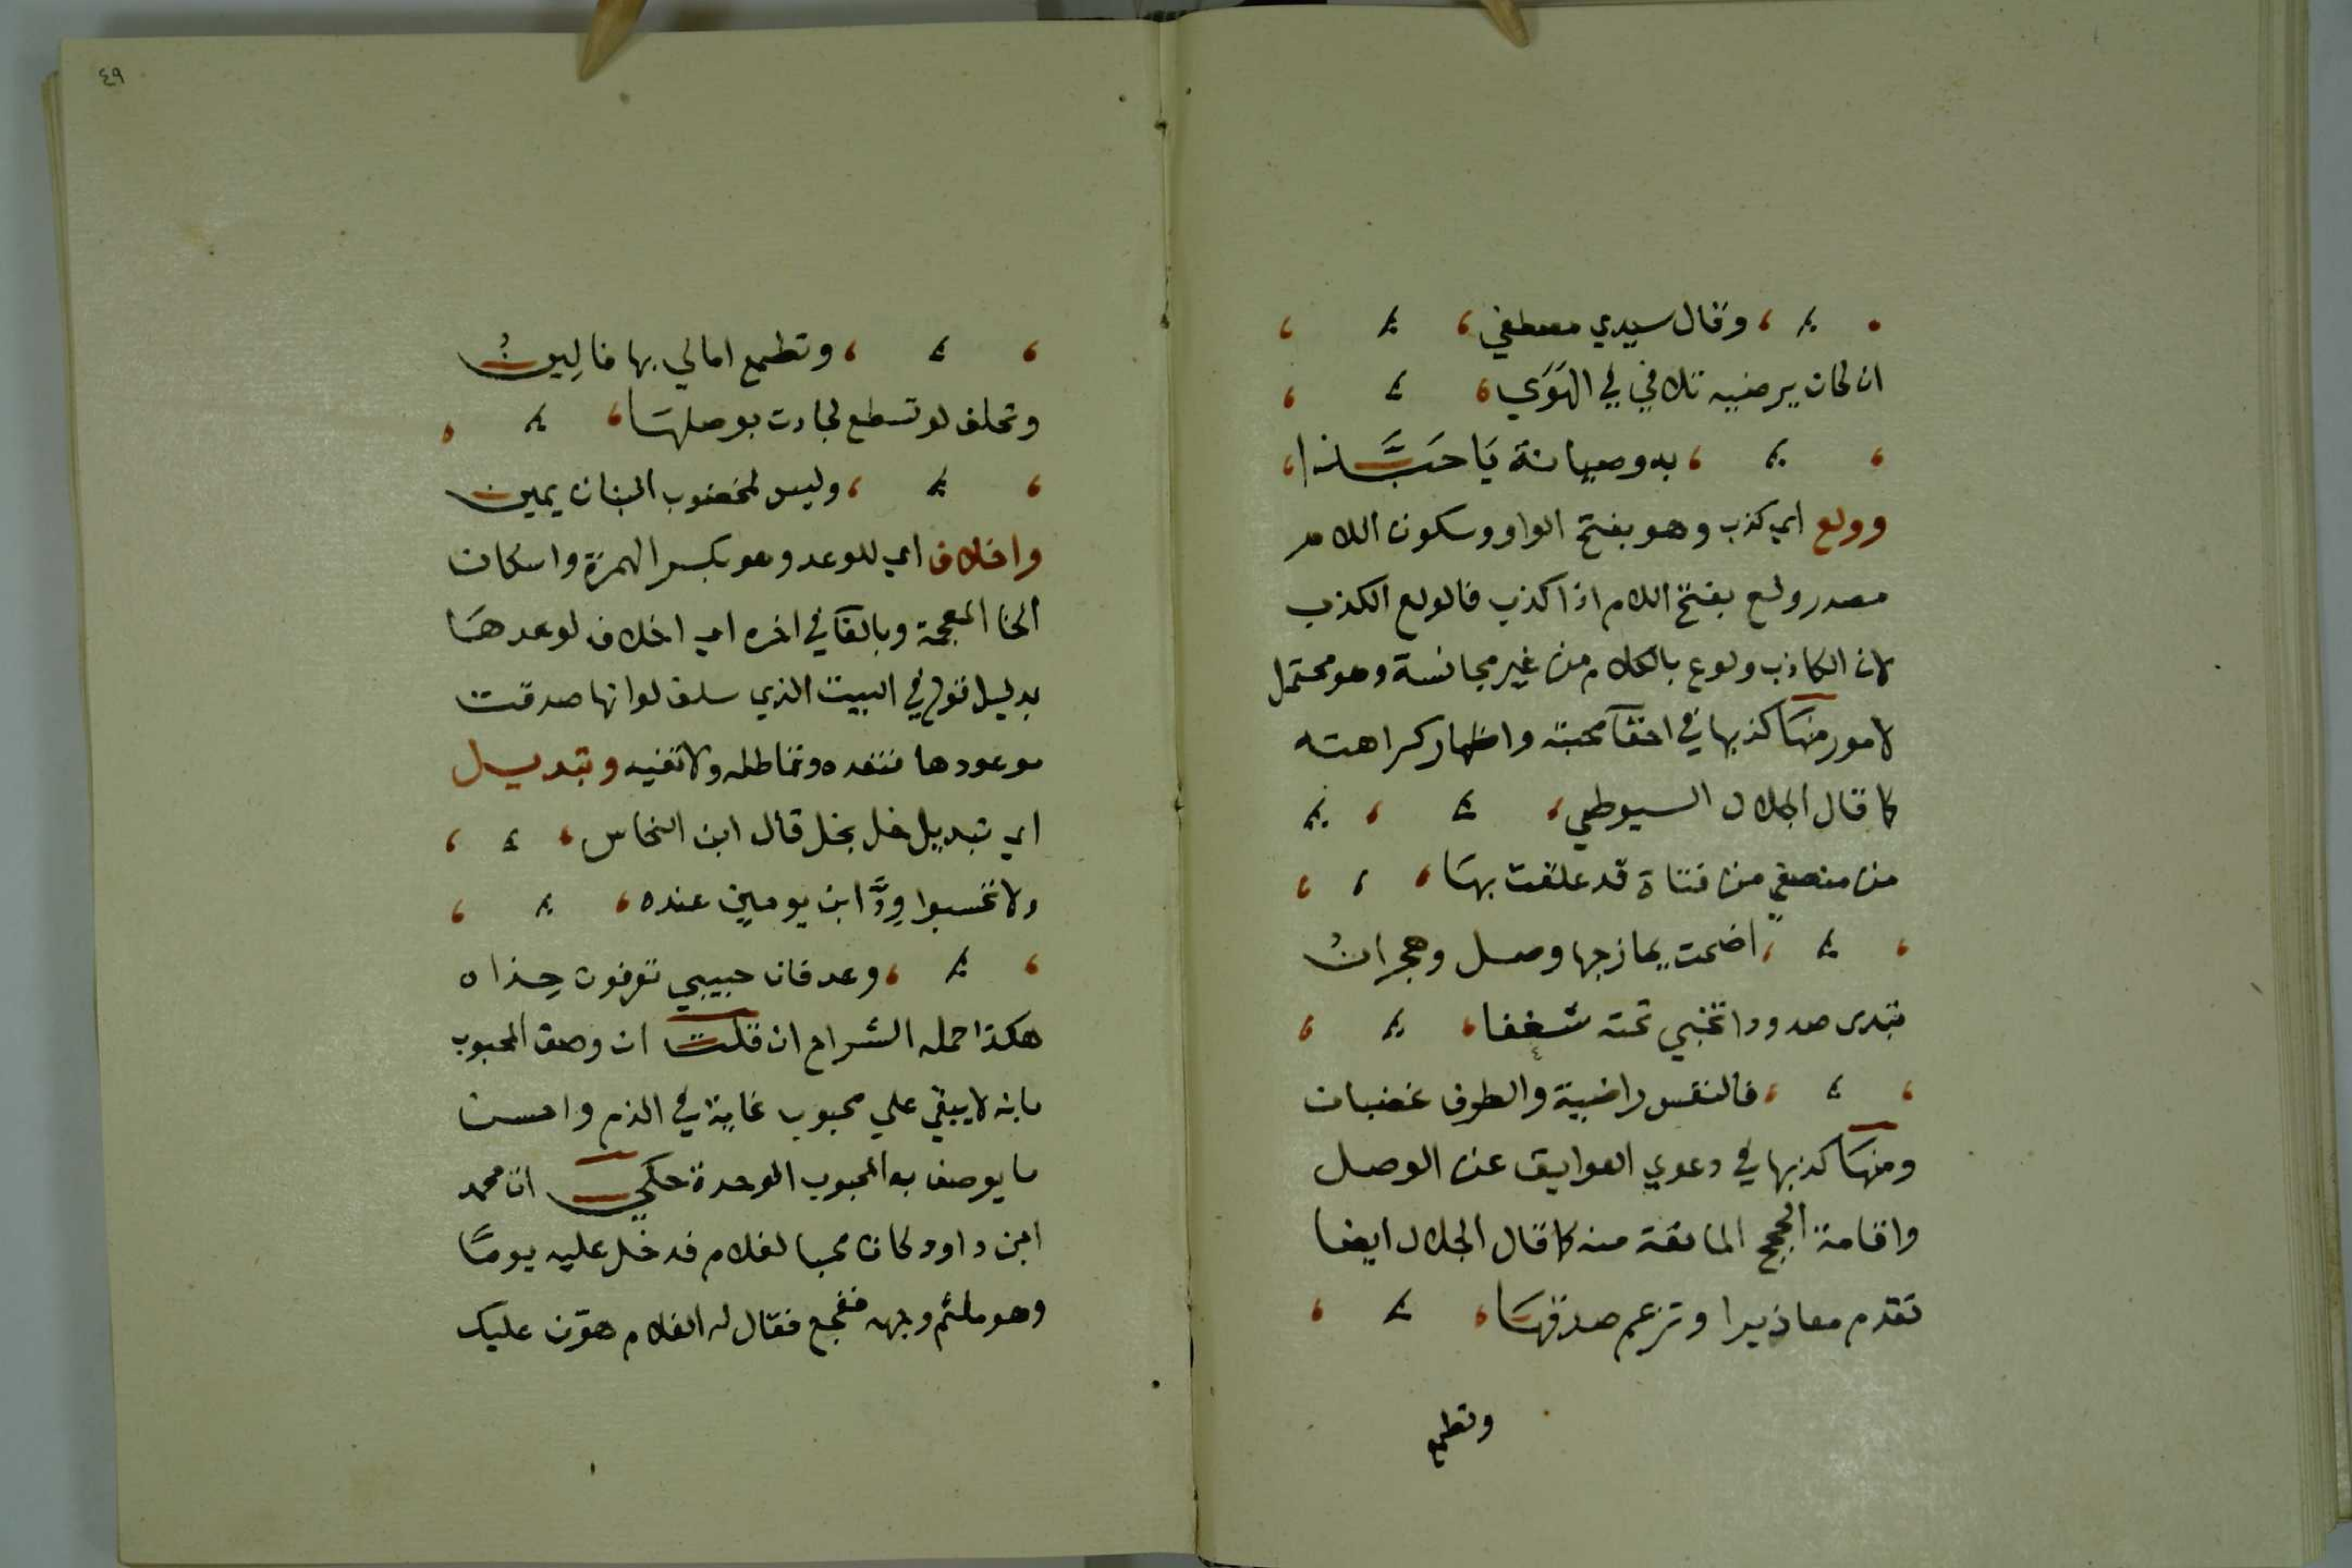 وقال سيدي مصطفي
ان كان يرضيه تلافي في الهَوَي
بدوصيانة يَا حَبَّذا
وولع اي كذب وهو بفتح الواو وسكون اللام
مصدر ولع بفتح اللام اذا كذب فالولع الكذب
لان الكاذب ولوع بالكلام من غير مجانسة وهو محتمل
لامور منهَا كذبها في اخفآ محبته واظهار كراهته
كما قال الجلال السيوطي
من منصفي من فتاة قد علقت بهَا
اضحت يمازجها وصل وهجرانُ
تبدى صدودا تخبي تحته شغفا
فالنفس راضية والطرف غضبان
ومنهَا كذبها في دعوي العوايق عن الوصل
واقامة الحجج المانعة منه كما قال الجلال ايضا
تقدم معاذيرا وتزعم صدقهَا
وتطمع
٤٩
وتطمع امالي بها فالِينُ
وتحلف لو تسطع لجادت بوصلهَا
وليس لمخضوب البنان يمين
واخلاف اي للوعد وهو بكسر الهمزة واسكان
الخا المعجمة وبالفآ في اخره اي اخلاف لوعدهَا
بدليل قوله في البيت الذي سلف لو انها صدقت
موعودها فتعده وتماطله ولا تفيه وتبديل
اي تبديل خل بخل قال ابن النحاس
ولا تحسبوا وِدَّ ابن يومين عنده
وعدفان حبيبي تعرفون حذاه
هكذا حمله الشراح ان قلت ان وصف المحبوب
بانه لا يبقي علي محبوب غاية في الذم واحسن
ما يوصف به المحبوب الوحدة حكي ان محمد
ابن داود كان محبا لغلام فدخل عليه يومًا
وهو ملثم وجهه ففجع فقال له الغلام هوّن عليك